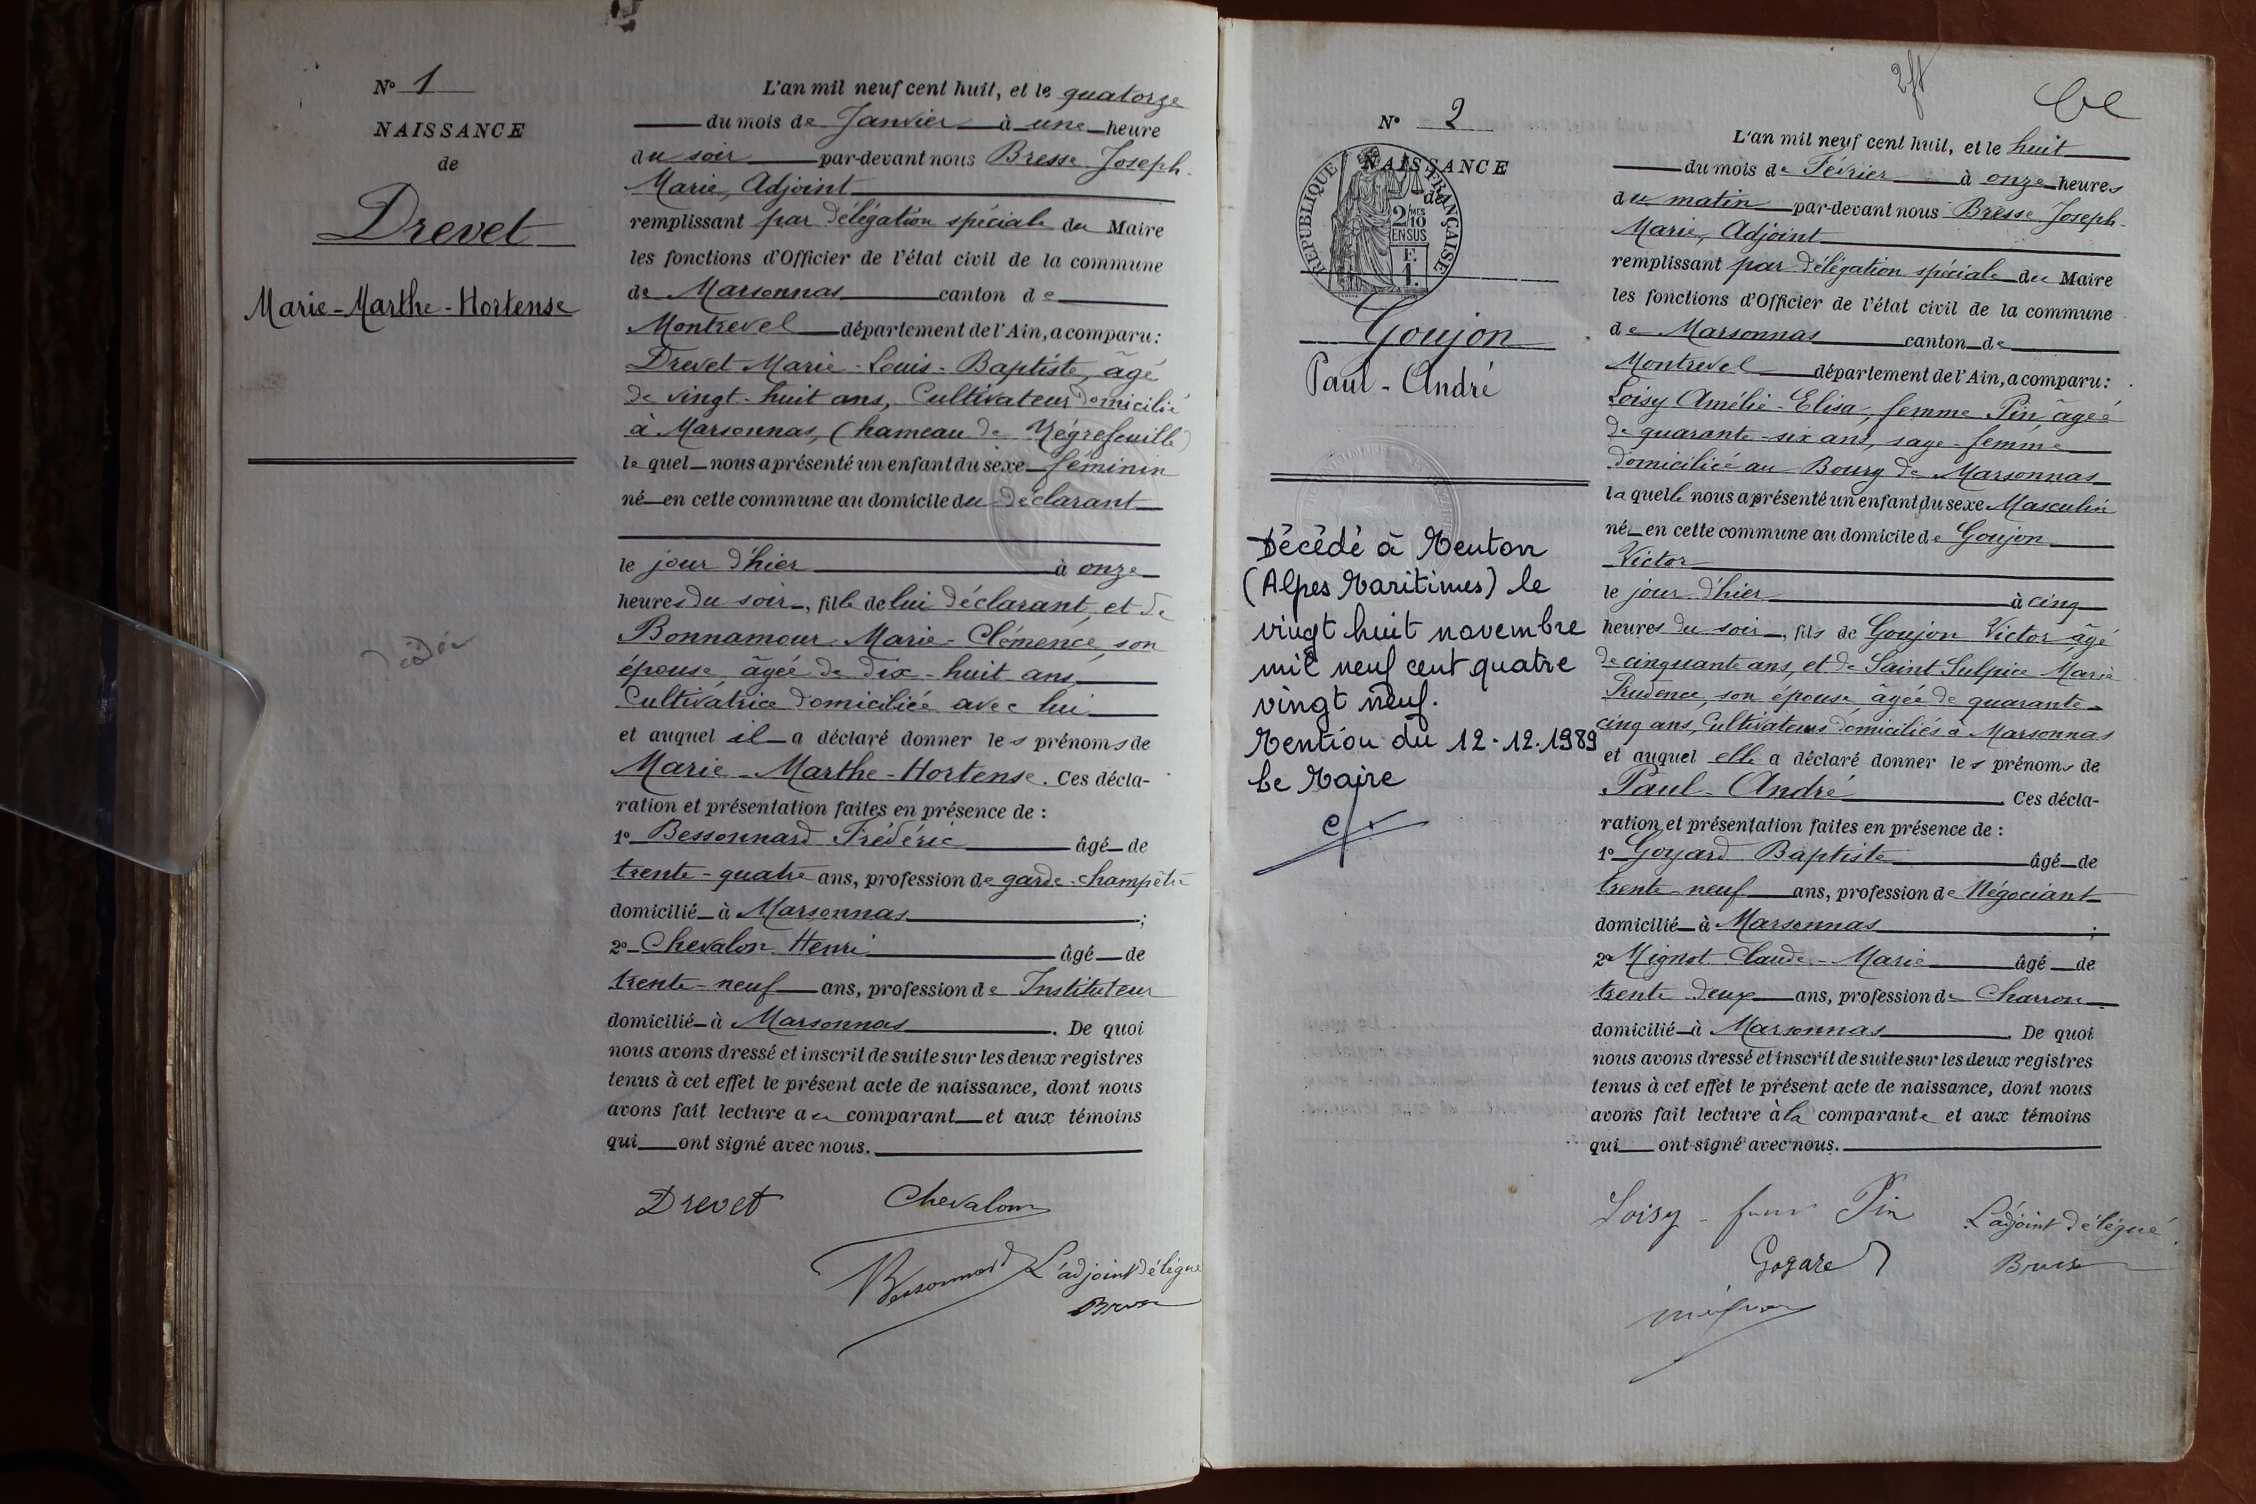 N° 1
NAISSANCE
de
Drevet
Marie-Marthe-Hortense
L'an mil neuf cent huit, et le quatorze
du mois de Janvier à une heure
du soir par-devant nous Bresse Joseph-
Marie, Adjoint
remplissant par délégation spéciale du Maire
les fonctions d'Officier de l'état civil de la commune
de Marsonnas canton de
Montrevel département de l'Ain, a comparu :
Drevet Marie-Louis-Baptiste, âgé
de vingt-huit ans, Cultivateur domicilié
à Marsonnas, (hameau de Négrefeuille)
lequel nous a présenté un enfant du sexe féminin
né en cette commune au domicile du déclarant
le jour d'hier à onze
heures du soir, fille de lui déclarant, et de
Bonnamour Marie-Clémence, son
épouse, âgée de dix-huit ans
Cultivatrice domiciliée avec lui
et auquel il a déclaré donner les prénoms de
Marie-Marthe-Hortense. Ces décla-
ration et présentation faites en présence de :
1° Bessonnard Frédéric âgé de
trente-quatre ans, profession de garde-champêtre
domicilié à Marsonnas ;
2° Chevalon Henri âgé de
trente-neuf ans, profession de Instituteur
domicilié à Marsonnas. De quoi
nous avons dressé et inscrit de suite sur les deux registres
tenus à cet effet le présent acte de naissance, dont nous
avons fait lecture au comparant et aux témoins
qui ont signé avec nous.
Drevet Chevalon
Bessonnard L'adjoint délégué
N° 2
NAISSANCE
de
RÉPUBLIQUE FRANÇAISE
2/10
MES
EN SUS
F.
1.
Goujon
Paul-André
Décédé à Menton
(Alpes Maritimes) le
vingt huit novembre
mil neuf cent quatre
vingt neuf.
Mention du 12.12.1989
Le Maire
L'an mil neuf cent huit, et le huit
du mois de Février à onze heures
du matin par-devant nous Bresse Joseph-
Marie, Adjoint
remplissant par délégation spéciale du Maire
les fonctions d'Officier de l'état civil de la commune
de Marsonnas canton de
Montrevel département de l'Ain, a comparu :
Loisy Amélie-Elisa, femme Pin âgée
de quarante-six ans, sage-femme
domiciliée au Bourg de Marsonnas
laquelle nous a présenté un enfant du sexe Masculin
né en cette commune au domicile de Goujon
Victor
le jour d'hier à cinq
heures du soir, fils de Goujon Victor âgé
de cinquante ans, et de Saint Sulpice Marie
Prudence, son épouse, âgée de quarante-
cinq ans, Cultivateurs domiciliés à Marsonnas
et auquel elle a déclaré donner les prénoms de
Paul-André. Ces décla-
ration et présentation faites en présence de :
1° Goyard Baptiste âgé de
trente-neuf ans, profession de Négociant
domicilié à Marsonnas ;
2° Mignot Claude-Marie âgé de
trente deux ans, profession de Charron
domicilié à Marsonnas. De quoi
nous avons dressé et inscrit de suite sur les deux registres
tenus à cet effet le présent acte de naissance, dont nous
avons fait lecture à la comparante et aux témoins
qui ont signé avec nous.
Loisy femme Pin L'adjoint délégué
Goyard